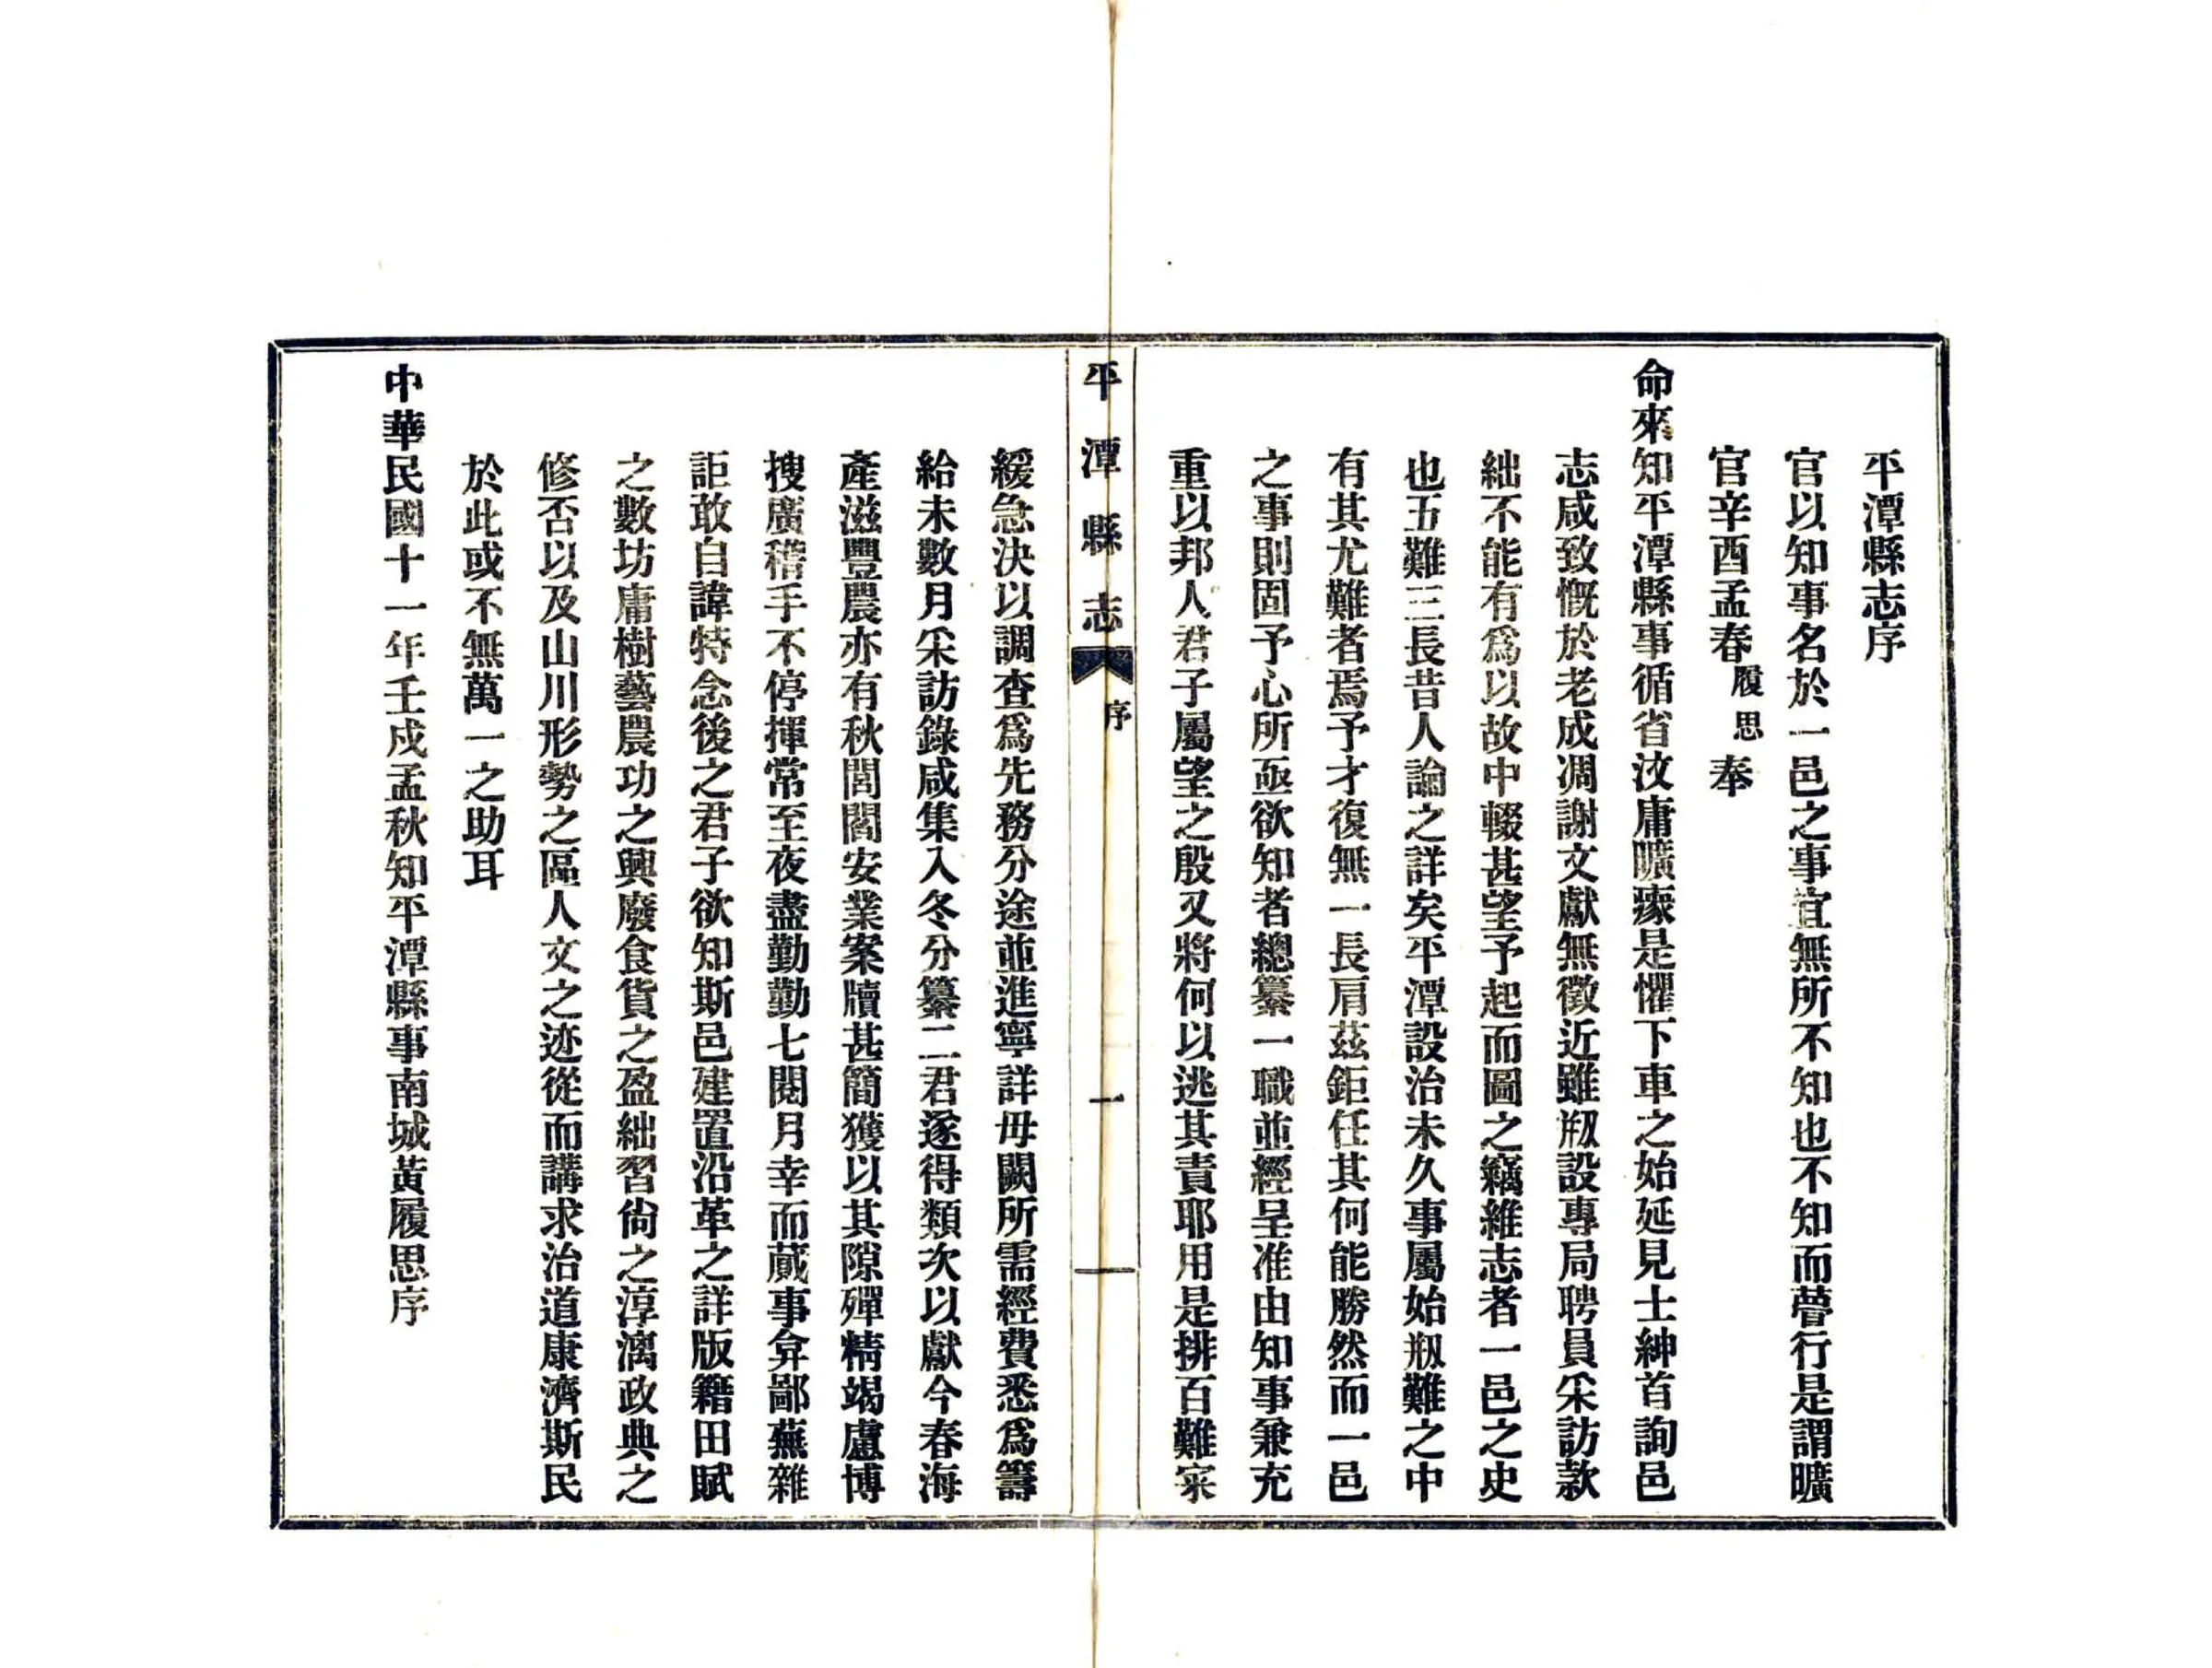 平潭縣志序
官以知事名於一邑之事宜無所不知也不知而瞢行是謂曠
官辛酉孟春履思奉
命來知平潭縣事循省汶庸曠瘝是懼下車之始延見士紳首詢邑
志咸致慨於老成凋謝文獻無徵近雖剏設專局聘員采訪款
絀不能有爲以故中輟甚望予起而圖之竊維志者一邑之史
也五難三長昔人論之詳矣平潭設治未久事屬始剏難之中
有其尤難者焉予才復無一長肩茲鉅任其何能勝然而一邑
之事則固予心所亟欲知者總纂一職並經呈准由知事兼充
重以邦人君子屬望之殷又將何以逃其責耶用是排百難寀
平潭縣志 序 一
緩急決以調查爲先務分途並進寧詳毋闕所需經費悉爲籌
給未數月采訪錄咸集入冬分纂二君遂得類次以獻今春海
產滋豐農亦有秋閭閻安業案牘甚簡獲以其隙殫精竭慮博
搜廣稽手不停揮常至夜盡勤勤七閱月幸而蕆事弇鄙蕪雜
詎敢自諱特念後之君子欲知斯邑建置沿革之詳版籍田賦
之數坊庸樹藝農功之興廢食貨之盈絀習尙之淳漓政典之
修否以及山川形勢之區人文之迹從而講求治道康濟斯民
於此或不無萬一之助耳
中華民國十一年壬戌孟秋知平潭縣事南城黃履思序